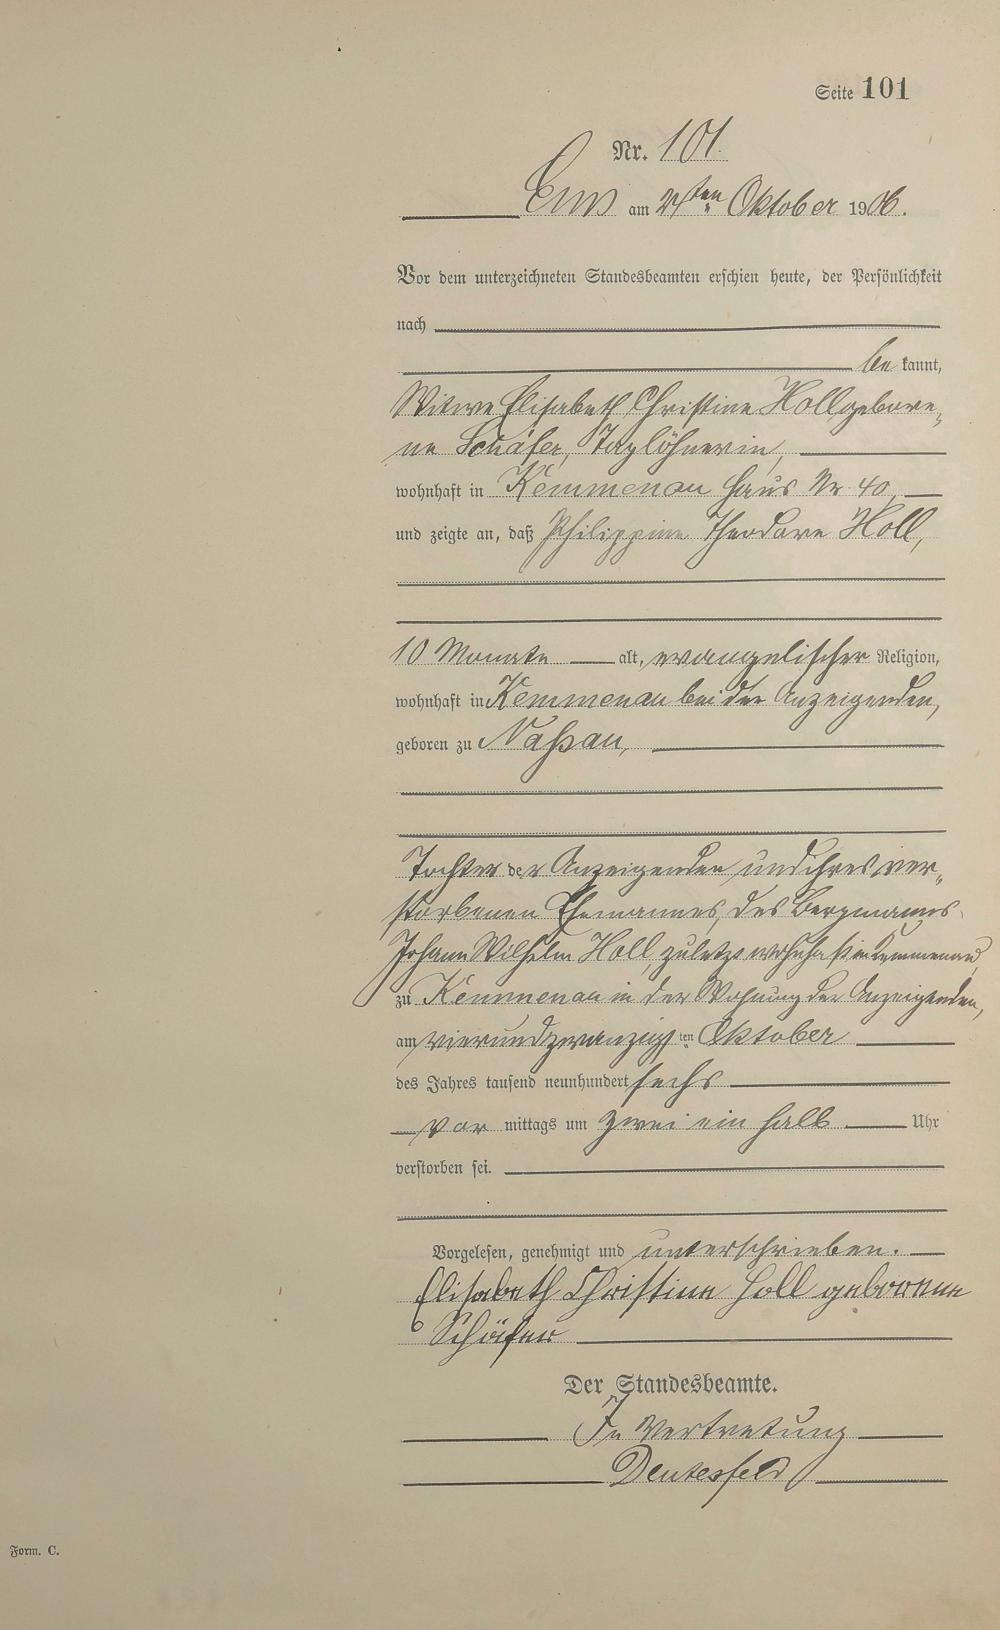 Seite 101
Nr. 101.
Ems am 24ten Oktober 1906.
Vor dem unterzeichneten Standesbeamten erschien heute, der Persönlichkeit
nach
be kannt,
Witwe Elisabeth Christine Holl gebore-
ne Schäfer, Taglöhnerin,
wohnhaft in Kemmenau Haus Nr 40,
und zeigte an, daß Philippine Theodore Holl,
10 Monate alt, evangelischer Religion,
wohnhaft in Kemmenau bei der Anzeigenden,
geboren zu Nassau,
Tochter der Anzeigenden und ihres ver-
storbenen Ehemannes, des Bergmanns
Johann Wilhelm Holl, zuletzt wohnhaft in Kemmenau,
zu Kemmenau in der Wohnung der Anzeigenden,
am vierundzwanzigsten Oktober
des Jahres tausend neunhundert sechs
vor mittags um zwei ein halb Uhr
verstorben sei.
Vorgelesen, genehmigt und unterschrieben.
Elisabeth Christine Holl geborene
Schäfer
Der Standesbeamte.
In Vertretung
Deutesfeld
Form. C.